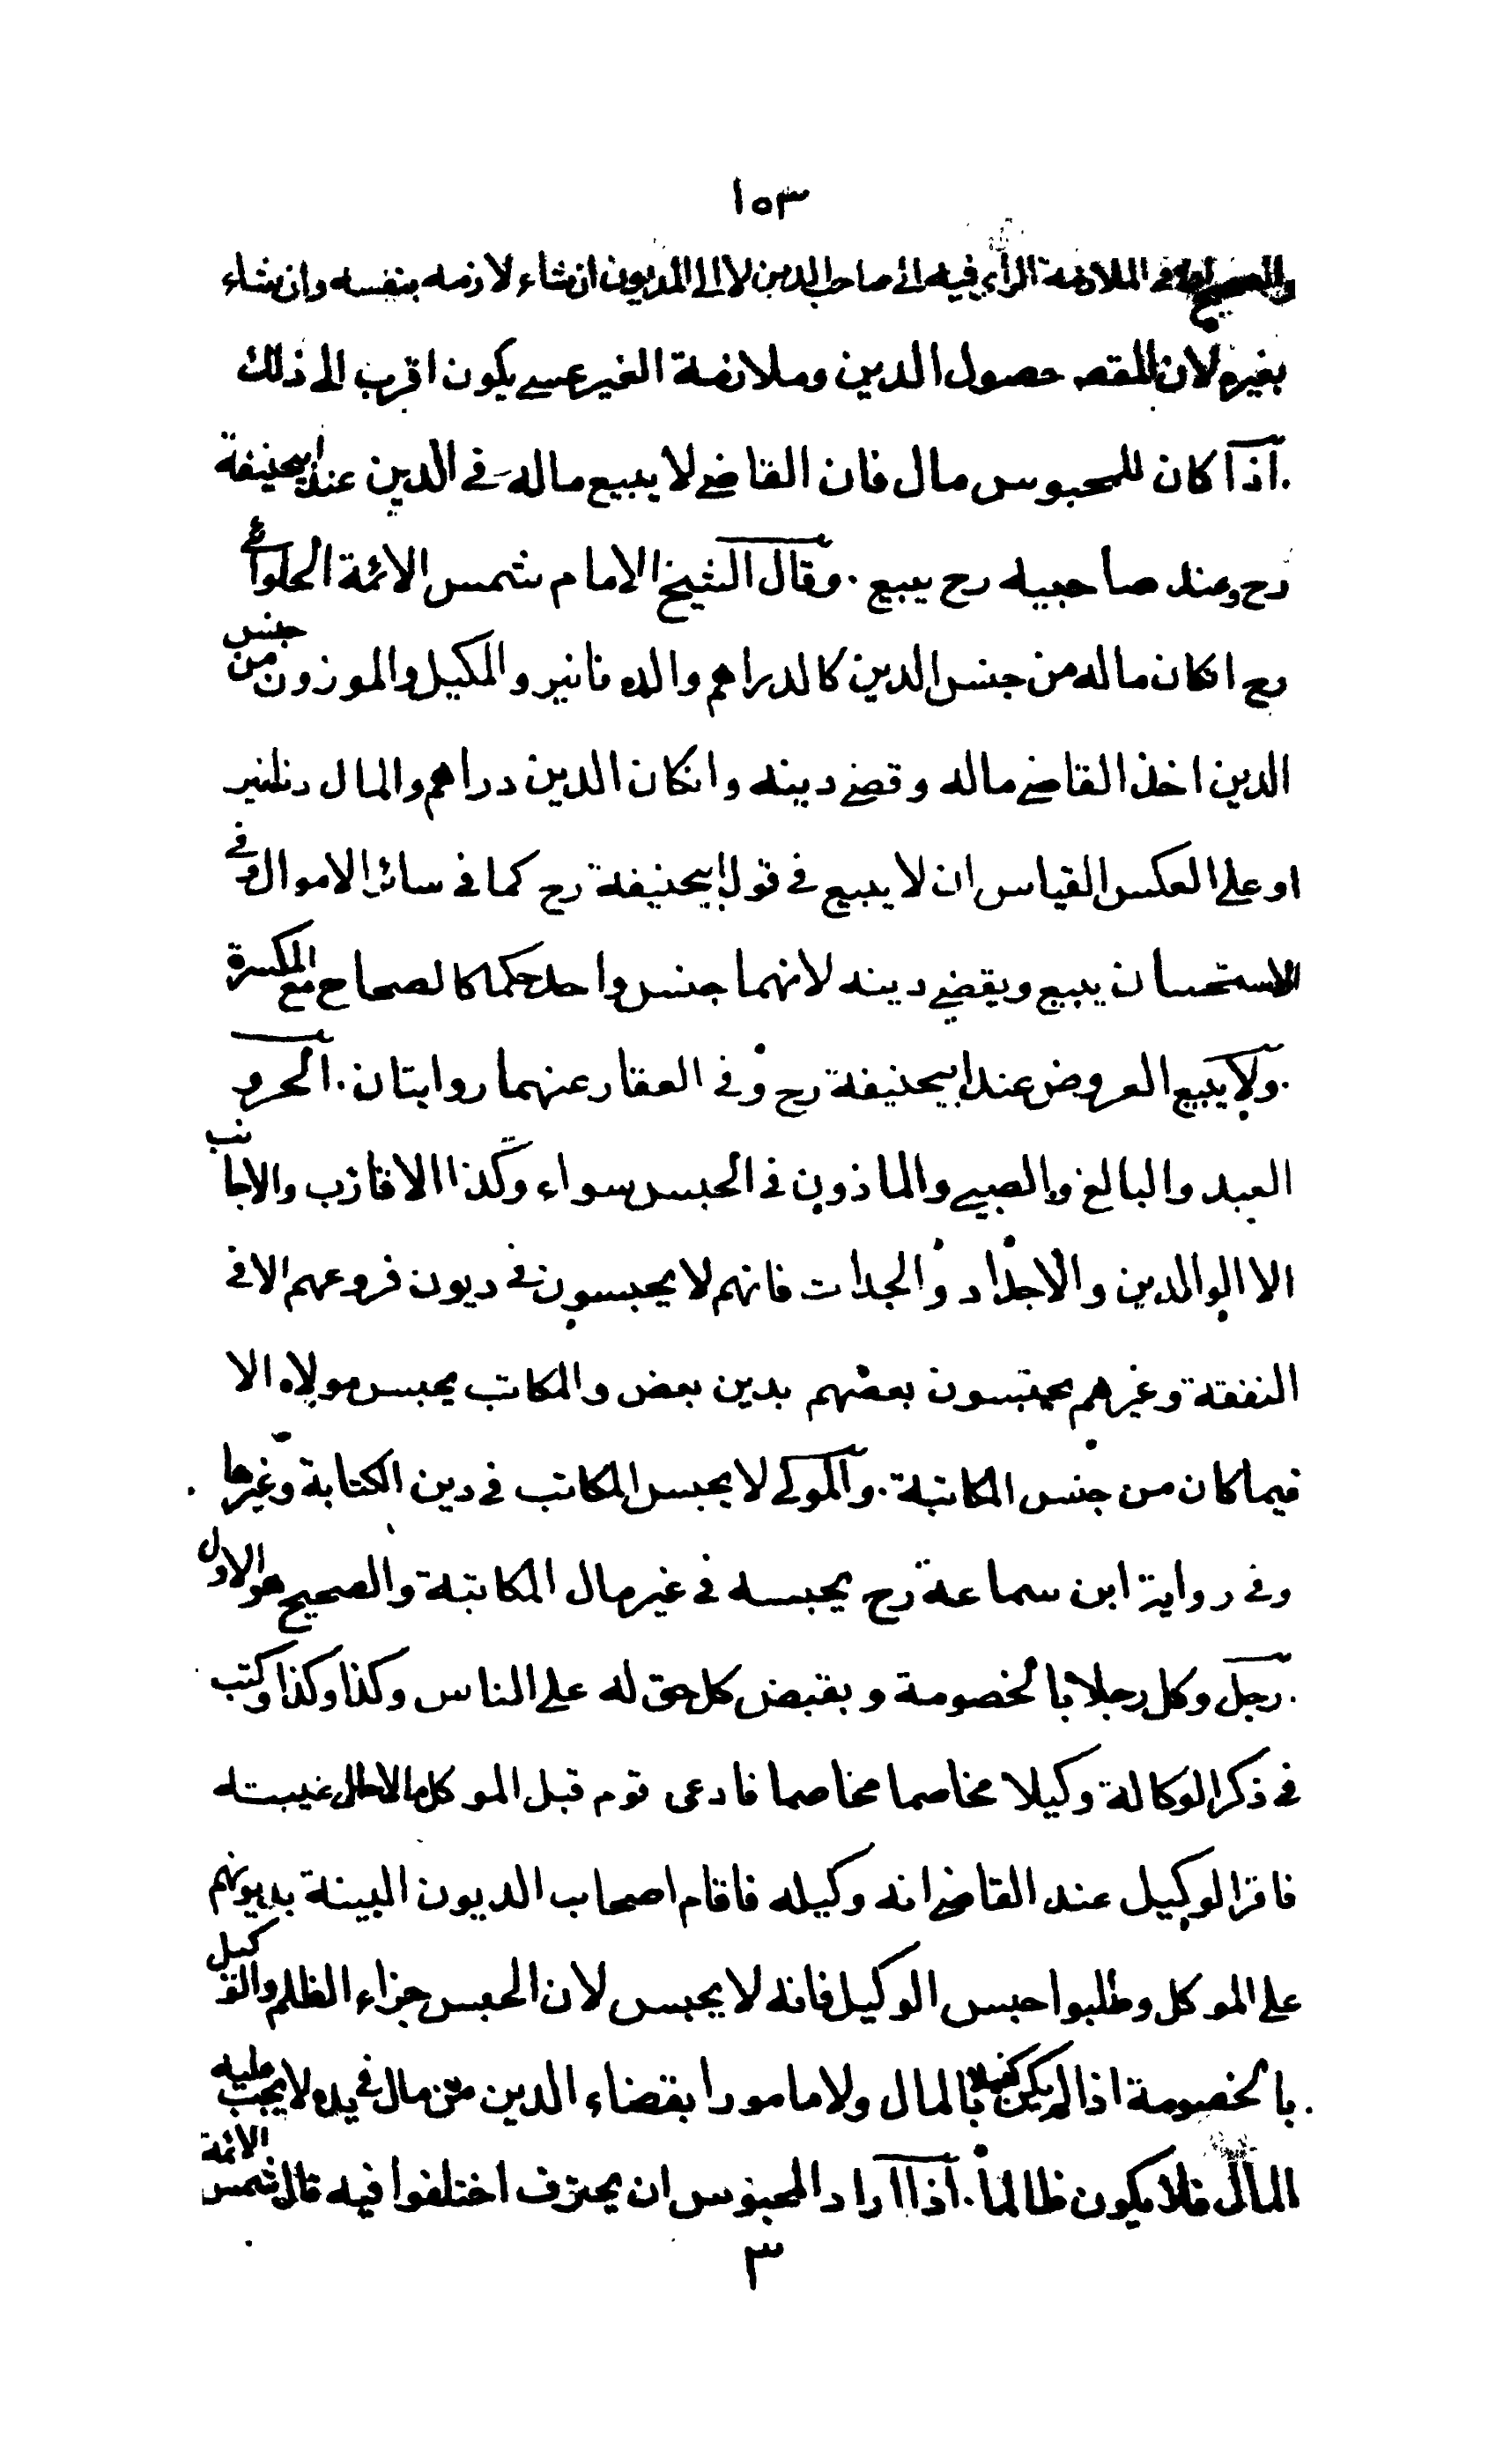 ١٥٣
والصحيح ان في الملازمة الرأي فيه الى صاحب الدين لا الى المديون ان شاء لازمه بنفسه وان شاء
بغيره لان المقصـ حصول الدين وملازمة الغير عسى يكون اقرب الى ذلك
.اذا كان للمحبوس مال فان القاضي لا يبيع ماله في الدين عند ابيحنيفة
رح وعند صاحبيه رح يبيع . وقال الشيخ الامام شمس الائمة الحلوائي
رح انكان ماله من جنس الدين كالدراهم والدنانير والمكيل والموزون من جنس
الدين اخذ القاضي ماله وقضى دينه وانكان الدين دراهم والمال دنانير
او على العكس القياس ان لا يبيع في قول ابيحنيفة رح كما في سائر الاموال وفي
الاستحسان يبيع ويقضي دينه لانهما جنس واحد حكما كالصحاح مع المكسرة
.ولا يبيع العروض عند ابيحنيفة رح وفي العقار عنهما روايتان . الحر و
العبد والبالغ والصبي والماذون في الحبس سواء وكذا الاقارب والاجانب
الا الوالدين والاجداد والجدات فانهم لا يحبسون في ديون فروعهم الا في
النفقة وغيرهم يحبسون بعضهم بدين بعض والمكاتب يحبس مولاه الا
فيما كان من جنس المكاتبة . والمولى لا يحبس المكاتب في دين الكتابة وغيرها
وفي رواية ابن سماعة رح يحبسه في غير مال المكاتبة والصحيح هو الاول
.رجل وكل رجلا بالخصومة وبقبض كل حق له على الناس وكذا وكذا وكتب
في ذكر الوكالة وكيلا مخاصما مخاصما فادعى قوم قبل الموكل مالا حال غيبته
فاقر الوكيل عند القاضي انه وكيله فاقام اصحاب الديون البينة بديونهم
على الموكل وطلبوا حبس الوكيل فانه لا يحبس لان الحبس جزاء الظلم والتوكيل
.بالخصومة اذا لم يكن كفيلا بالمال ولا مامورا بقضاء الدين من مال في يده لا يجب عليه
المال فلا يكون ظالما . اذا اراد المحبوس ان يحترف اختلفوا فيه قال شمس الائمة
٣